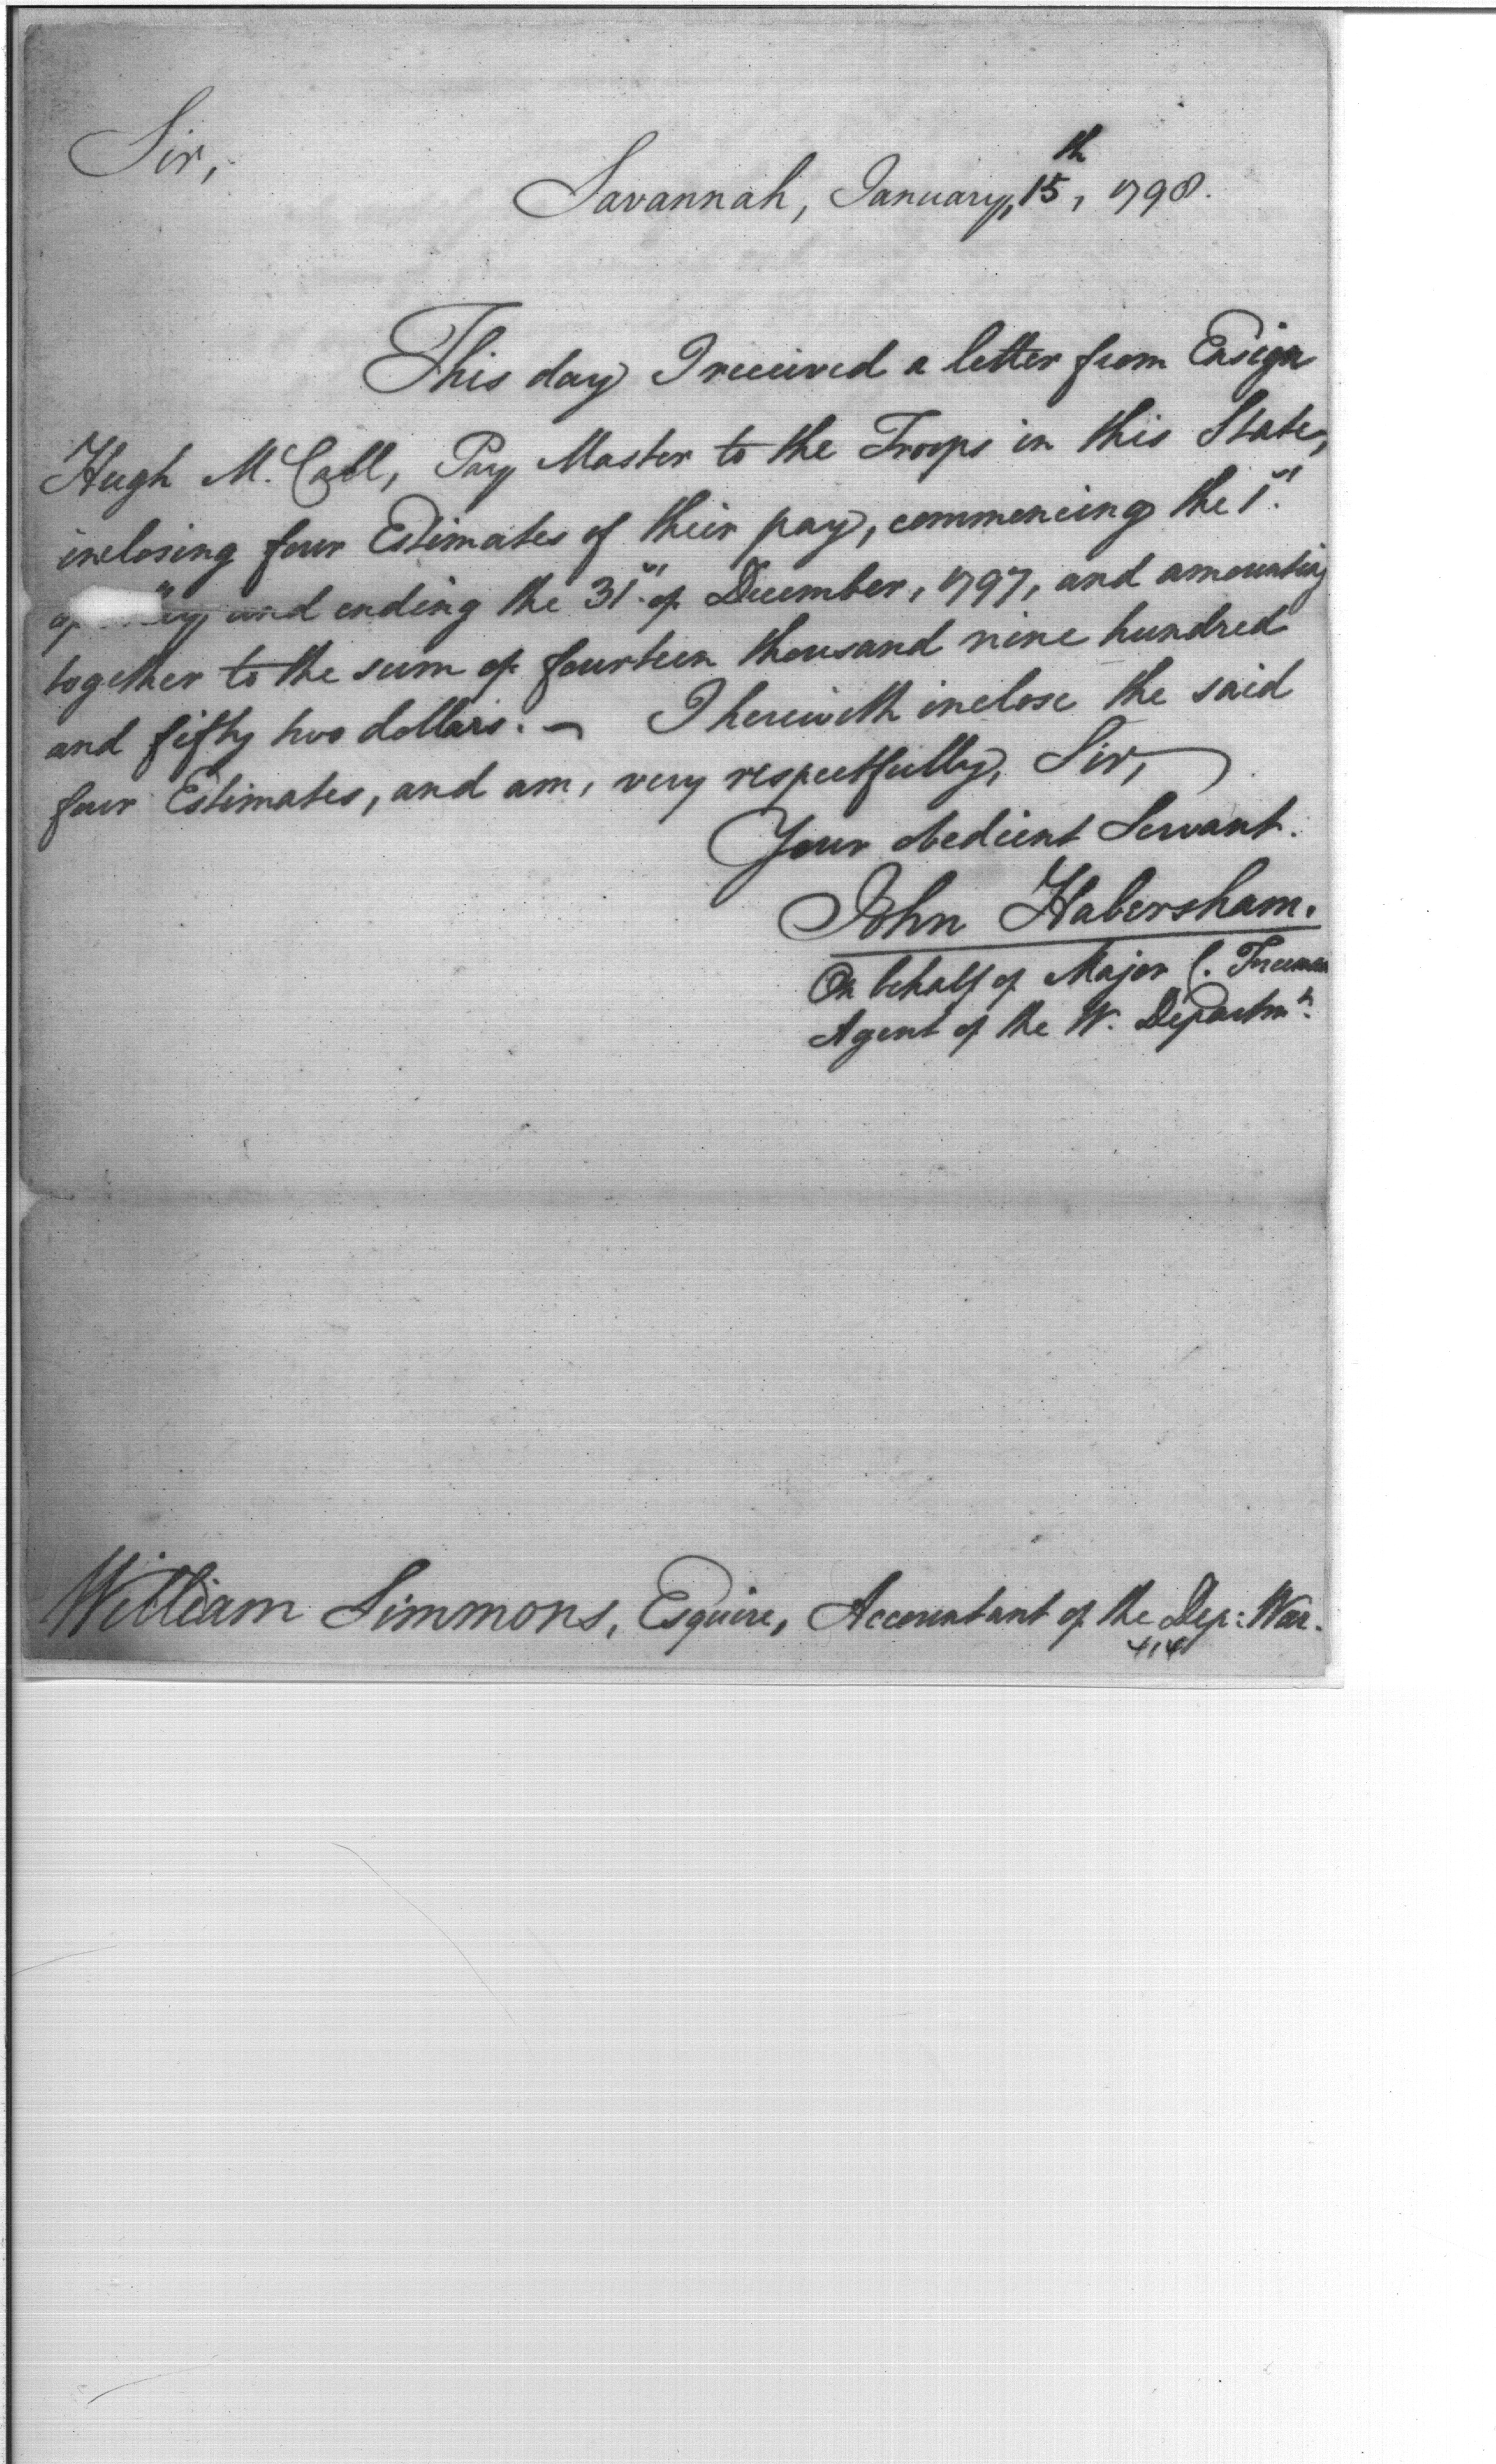 Sir,
Savannah, January, 15th, 1798.
This day I received a letter from Ensign
Hugh M.Call, Pay Master to the Troops in this State,
inclosing four Estimates of their pay, commencing the 1st.
of and ending the 31st. of December, 1797, and amounting
together to the sum of fourteen thousand nine hundred
and fifty two dollars. — I herewith inclose the said
four Estimates, and am, very respectfully, Sir,
Your obedient Servant.
John Habersham.
On behalf of Major C. Freeman
Agent of the W. Departmt.
William Simmons, Esquire, Accountant of the Dep: War.
414